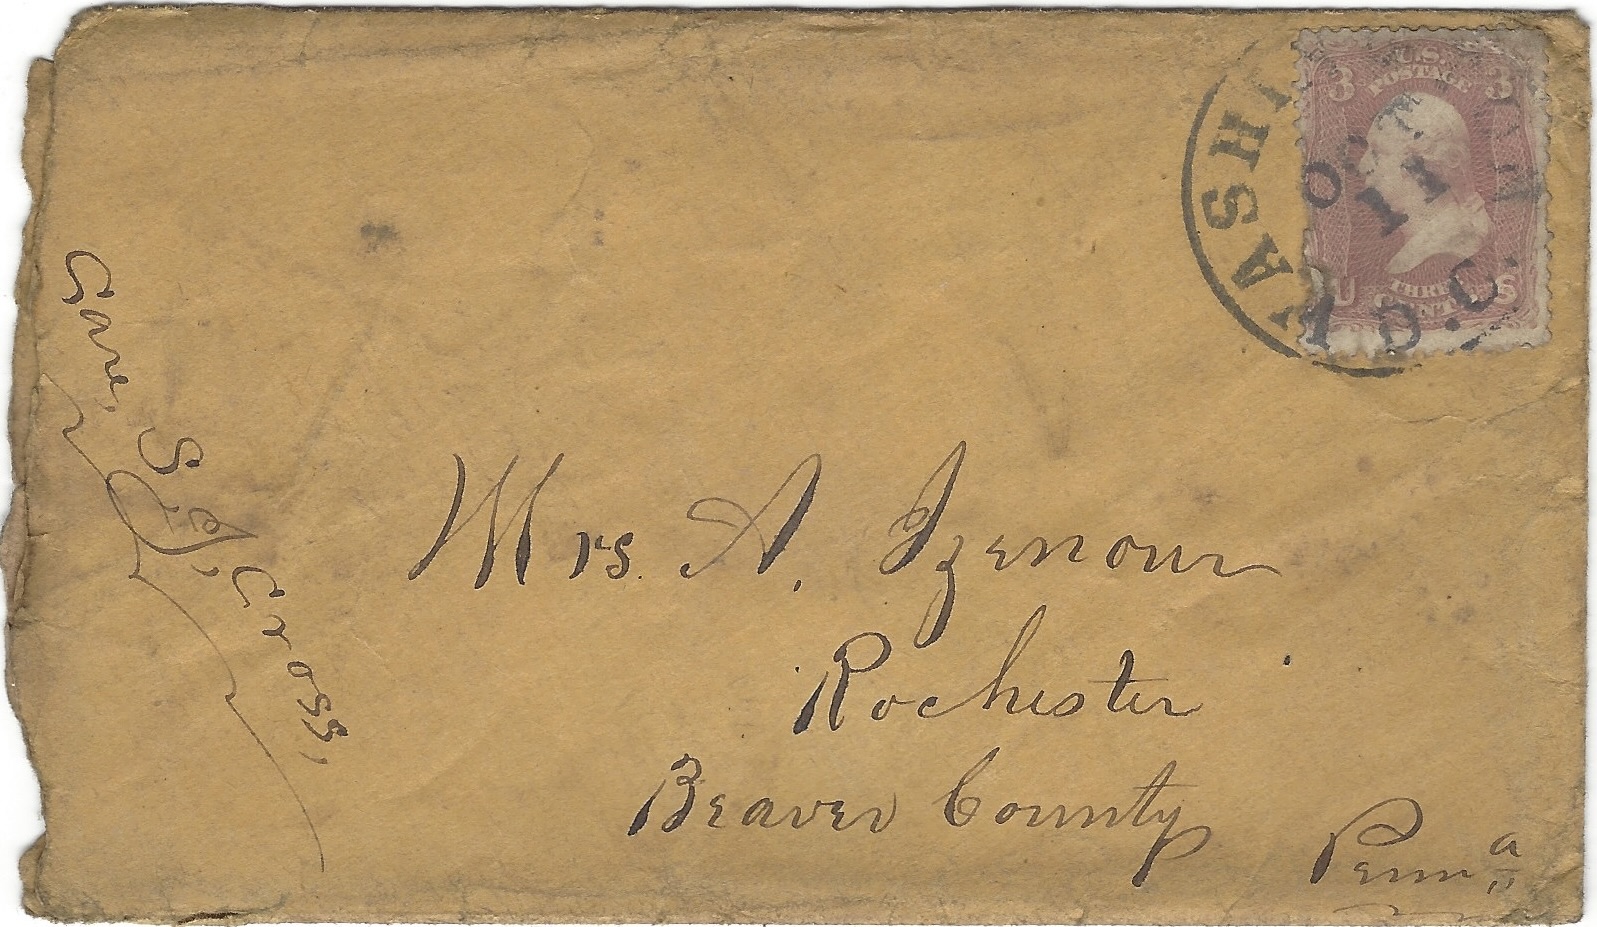 WASHI
OCT
11
D.C.
3 U.S. 3
POSTAGE
U THREE S
CENTS
Care, S. J. Cross,
Mrs. A. Izenour
Rochester
Beaver County
Penna